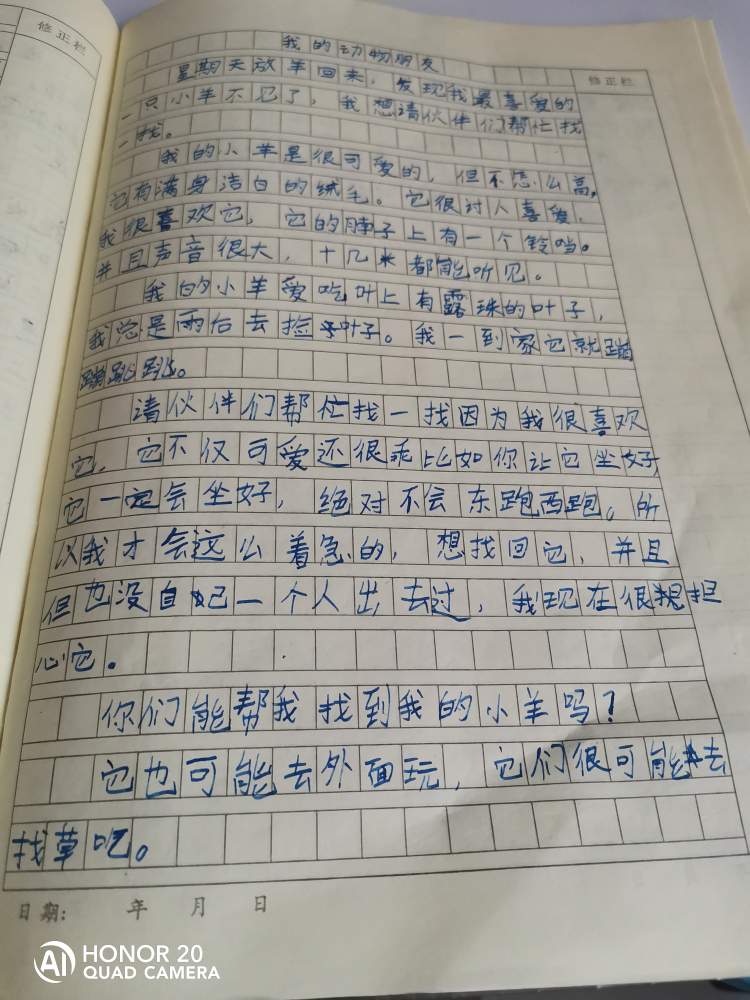 修正栏
修正栏
我的动物朋友
星期天放羊回来，发现我最喜爱的
一只小羊不见了，我想请伙伴们帮忙找
一找。
我的小羊是很可爱的，但不怎么高，
它有满身洁白的绒毛。它很讨人喜爱，
我很喜欢它，它的脖子上有一个铃铛。
并且声音很大，十几米都能听见。
我的小羊爱吃叶上有露珠的叶子，
我总是雨后去捡叶子。我一到家它就蹦
蹦跳跳。
请伙伴们帮忙找一找因为我很喜欢
它，它不仅可爱还很乖比如你让它坐好，
它一定会坐好，绝对不会东跑西跑。所
以我才会这么着急的，想找回它，并且
但也没自己一个人出去过，我现在很担
心它。
你们能帮我找到我的小羊吗？
它也可能去外面玩，它们很可能去
找草吃。
日期： 年 月 日
AI HONOR 20
QUAD CAMERA